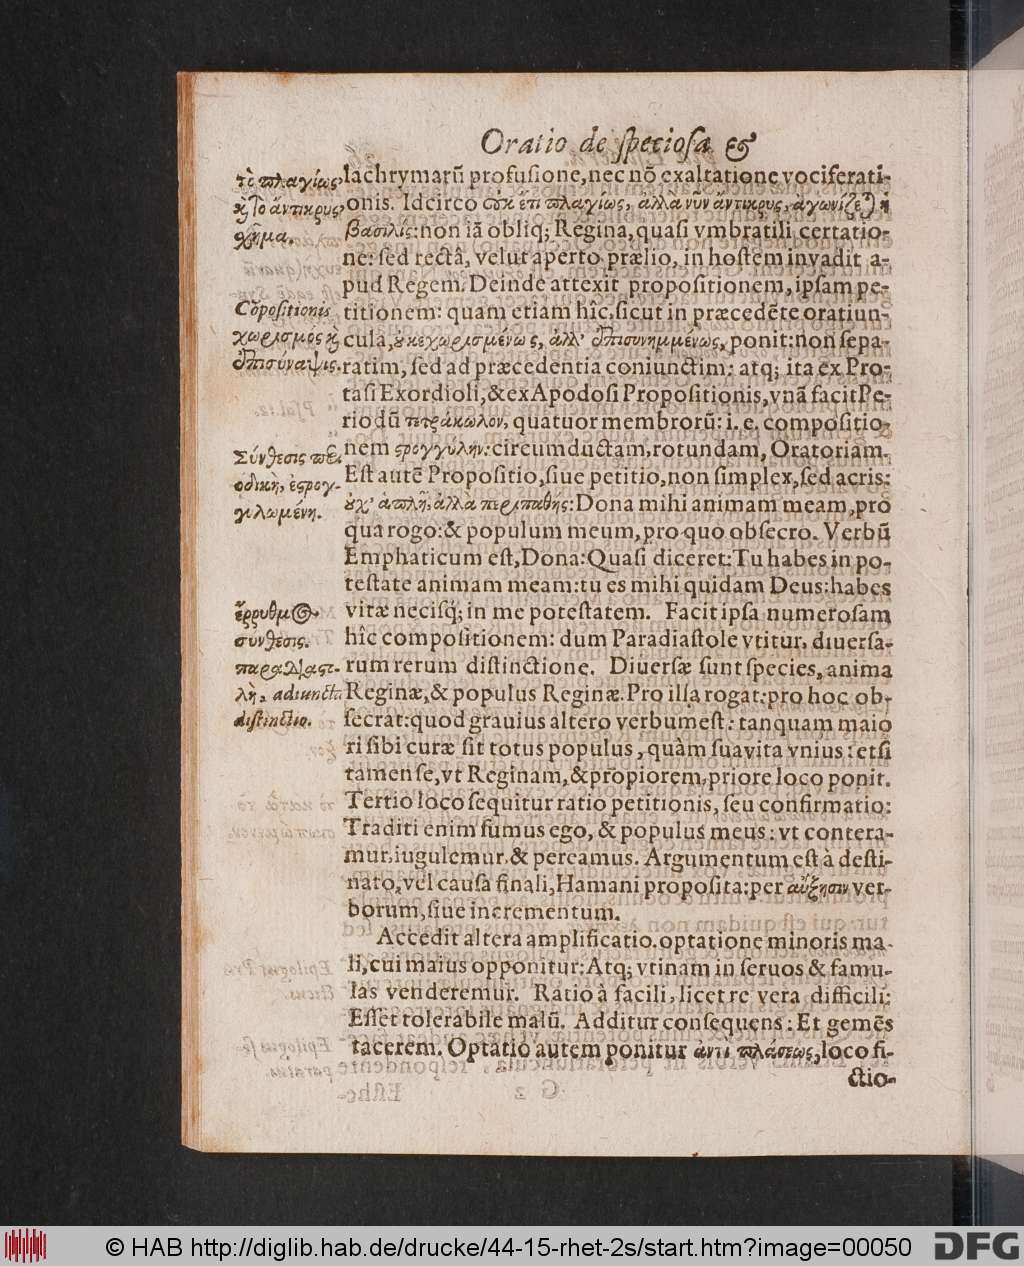 Oratio de ſpecioſa &
lachrymarũ profuſione, nec nõ exaltatione vociferati-
onis. Idcirco οὐκ ἔτι πλαγίως, ἀλλὰ νῦν ἄντικρυς, ἀγωνίζεται ἡ
βασιλίς: non iã obliq; Regina, quaſi vmbratili certatio-
ne: ſed rectâ, velut aperto prælio, in hoſtem invadit a-
pud Regem. Deinde attexit propoſitionem, ipſam pe-
titionem: quam etiam hîc, ſicut in præcedẽte oratiun-
cula, ȣ κεχωρισμένως, ἀλλ' ἐπισυνημμένως, ponit: non ſepa-
ratim, ſed ad præcedentia coniunctim: atq; ita ex Pro-
taſi Exordioli, & ex Apodoſi Propoſitionis, vnã facit Pe-
riodũ τετράκωλον, quatuor membrorũ: i. e. compoſitio-
nem ϛρογγύλην: circumductam, rotundam, Oratoriam.
Eſt autẽ Propoſitio, ſiue petitio, non ſimplex, ſed acris:
ȣχ' ἁπλῆ, ἀλλὰ περιπαθής: Dona mihi animam meam, pro
qua rogo: & populum meum, pro quo obſecro. Verbũ
Emphaticum eſt, Dona: Quaſi diceret: Tu habes in po-
teſtate animam meam: tu es mihi quidam Deus: habes
vitæ neciſq; in me poteſtatem. Facit ipſa numeroſam
hîc compoſitionem: dum Paradiaſtole vtitur, diuerſa-
rum rerum diſtinctione. Diuerſæ ſunt ſpecies, anima
Reginæ, & populus Reginæ. Pro illa rogat: pro hoc ob-
ſecrat: quod grauius altero verbum eſt: tanquam maio
ri ſibi curæ ſit totus populus, quàm ſua vita vnius: etſi
tamen ſe, vt Reginam, & propiorem, priore loco ponit.
Tertio loco ſequitur ratio petitionis, ſeu confirmatio:
Traditi enim ſumus ego, & populus meus: vt contera-
mur, iugulemur, & pereamus. Argumentum eſt à deſti-
nato, vel cauſa finali, Hamani propoſita: per αὔξησιν ver-
borum, ſiue incrementum.
Accedit altera amplificatio, optatione minoris ma-
li, cui maius opponitur: Atq; vtinam in ſeruos & famu-
las venderemur. Ratio à facili, licet re vera difficili:
Eſſet tolerabile malũ. Additur conſequens: Et gemẽs
tacerem. Optatio autem ponitur ἀντὶ πλάσεως, loco fi-
ctio-
τὸ πλαγίως,
κ̀ τὸ ἄντικρυς
χῆμα.
Cõpoſitionis
χωρισμὸς κ̀
ἐπισύναψις.
Σύνθεσις περι-
οδικὴ, ἐϛρογ-
γυλωμένη.
ἔρρυθμος
σύνθεσις.
παραδιαϛο-
λὴ, adiuncta
diſtinctio.
© HAB http://diglib.hab.de/drucke/44-15-rhet-2s/start.htm?image=00050
DFG